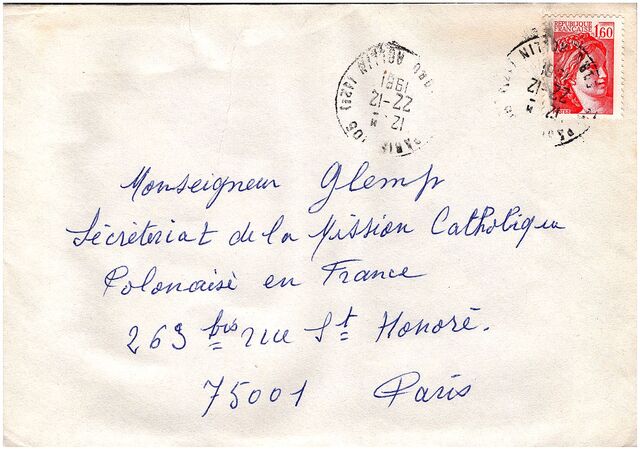 REPUBLIQUE
FRANÇAISE
1,60
PARIS 105 (12E)
12 H
22-12
1981
Monseigneur Glemp
Sécréteriat de la Mission Catholique
Polonaise en France
263 bis rue St Honoré.
75001 Paris